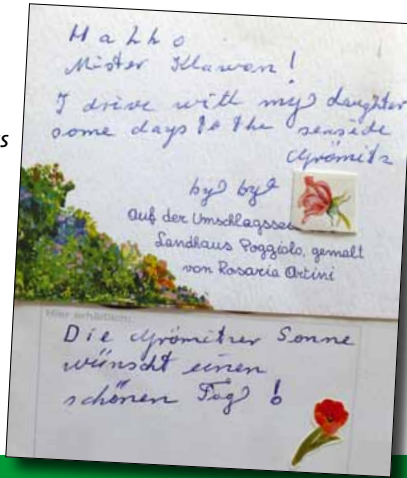 Hallo
Mister Klawon!
I drive with my daughter
some days to the seaside
Grömitz
by by
Auf der Umschlagssei
Landhaus Poggiolo, gemalt
von Rosaria Ortini
Hier erhältlich:
Die Grömitzer Sonne
wünscht einen
schönen Tag!
s